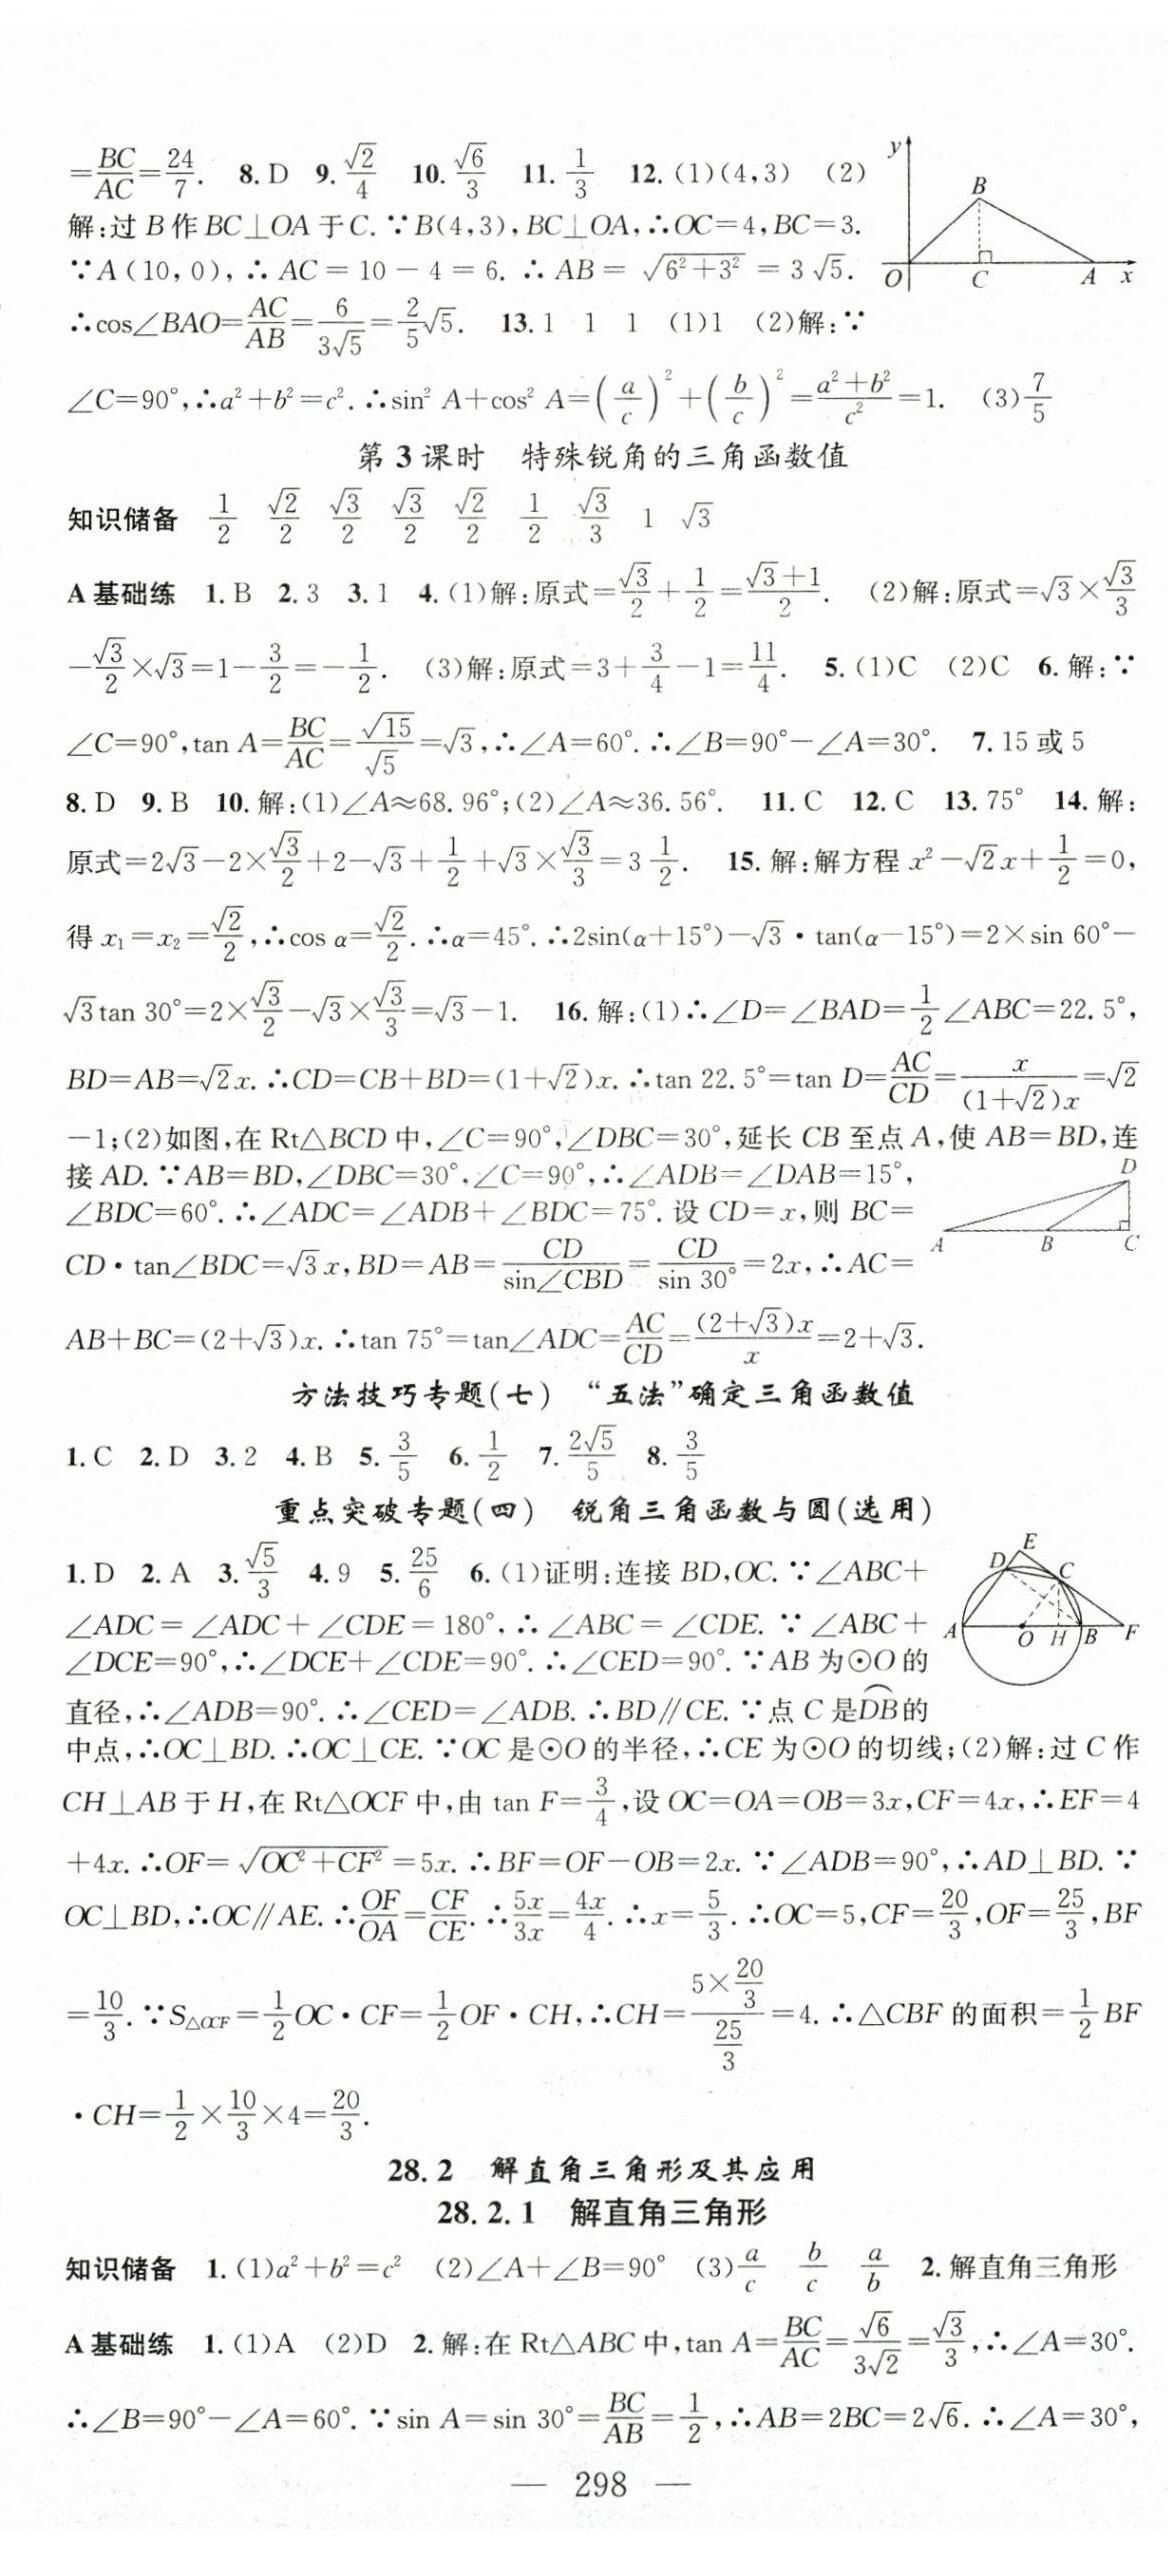 =BC/AC=24/7. 8. D 9. √2/4 10. √6/3 11. 1/3 12. (1)(4,3) (2)
解:过 B 作 BC⊥OA 于 C. ∵B(4,3),BC⊥OA,∴OC=4,BC=3.
∵A(10,0),∴AC=10-4=6. ∴AB=√(6²+3²)=3√5.
∴cos∠BAO=AC/AB=6/(3√5)=2/5√5. 13. 1 1 1 (1)1 (2)解:∵
∠C=90°,∴a²+b²=c². ∴sin² A+cos² A=(a/c)²+(b/c)²=(a²+b²)/c²=1. (3)7/5
y B O C A x
第3课时 特殊锐角的三角函数值
知识储备 1/2 √2/2 √3/2 √3/2 √2/2 1/2 √3/3 1 √3
A基础练 1. B 2. 3 3. 1 4. (1)解:原式=√3/2+1/2=(√3+1)/2. (2)解:原式=√3×√3/3
-√3/2×√3=1-3/2=-1/2. (3)解:原式=3+3/4-1=11/4. 5. (1)C (2)C 6. 解:∵
∠C=90°,tan A=BC/AC=√15/√5=√3,∴∠A=60°. ∴∠B=90°-∠A=30°. 7. 15或5
8. D 9. B 10. 解:(1)∠A≈68.96°;(2)∠A≈36.56°. 11. C 12. C 13. 75° 14. 解:
原式=2√3-2×√3/2+2-√3+1/2+√3×√3/3=3 1/2. 15. 解:解方程 x²-√2x+1/2=0,
得 x₁=x₂=√2/2,∴cos α=√2/2. ∴α=45°. ∴2sin(α+15°)-√3·tan(α-15°)=2×sin 60°-
√3tan 30°=2×√3/2-√3×√3/3=√3-1. 16. 解:(1)∴∠D=∠BAD=1/2∠ABC=22.5°,
BD=AB=√2x. ∴CD=CB+BD=(1+√2)x. ∴tan 22.5°=tan D=AC/CD=x/((1+√2)x)=√2
-1;(2)如图,在 Rt△BCD 中,∠C=90°,∠DBC=30°,延长 CB 至点 A,使 AB=BD,连
接 AD. ∵AB=BD,∠DBC=30°,∠C=90°,∴∠ADB=∠DAB=15°,
∠BDC=60°. ∴∠ADC=∠ADB+∠BDC=75°. 设 CD=x,则 BC=
CD·tan∠BDC=√3x,BD=AB=CD/sin∠CBD=CD/sin 30°=2x,∴AC=
AB+BC=(2+√3)x. ∴tan 75°=tan∠ADC=AC/CD=(2+√3)x/x=2+√3.
D A B C
方法技巧专题(七) “五法”确定三角函数值
1. C 2. D 3. 2 4. B 5. 3/5 6. 1/2 7. 2√5/5 8. 3/5
重点突破专题(四) 锐角三角函数与圆(选用)
1. D 2. A 3. √5/3 4. 9 5. 25/6 6. (1)证明:连接 BD,OC. ∵∠ABC+
∠ADC=∠ADC+∠CDE=180°,∴∠ABC=∠CDE. ∵∠ABC+
∠DCE=90°,∴∠DCE+∠CDE=90°. ∴∠CED=90°. ∵AB 为⊙O 的
直径,∴∠ADB=90°. ∴∠CED=∠ADB. ∴BD∥CE. ∵点 C 是⌒DB的
中点,∴OC⊥BD. ∴OC⊥CE. ∵OC 是⊙O 的半径,∴CE 为⊙O 的切线;(2)解:过 C 作
E D C A O H B F
CH⊥AB 于 H,在 Rt△OCF 中,由 tan F=3/4,设 OC=OA=OB=3x,CF=4x,∴EF=4
+4x. ∴OF=√(OC²+CF²)=5x. ∴BF=OF-OB=2x. ∵∠ADB=90°,∴AD⊥BD. ∵
OC⊥BD,∴OC∥AE. ∴OF/OA=CF/CE. ∴5x/3x=4x/4. ∴x=5/3. ∴OC=5,CF=20/3,OF=25/3,BF
=10/3. ∵S△OCF=1/2OC·CF=1/2OF·CH,∴CH=(5×20/3)/(25/3)=4. ∴△CBF 的面积=1/2BF
·CH=1/2×10/3×4=20/3.
28.2 解直角三角形及其应用
28.2.1 解直角三角形
知识储备 1. (1)a²+b²=c² (2)∠A+∠B=90° (3)a/c b/c a/b 2. 解直角三角形
A基础练 1. (1)A (2)D 2. 解:在 Rt△ABC 中,tan A=BC/AC=√6/(3√2)=√3/3,∴∠A=30°.
∴∠B=90°-∠A=60°. ∵sin A=sin 30°=BC/AB=1/2,∴AB=2BC=2√6. ∴∠A=30°,
— 298 —